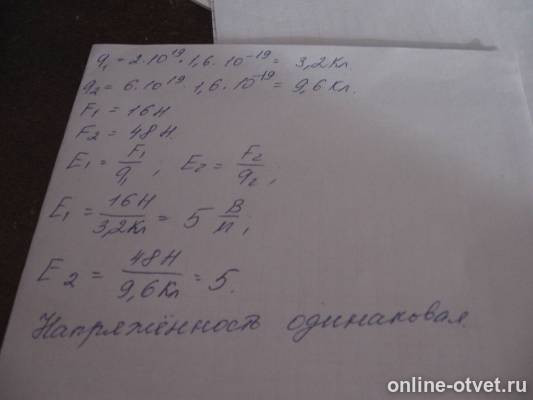 q₁ = 2·10¹⁹·1,6·10⁻¹⁹ = 3,2 Кл.
q₂ = 6·10¹⁹·1,6·10⁻¹⁹ = 9,6 Кл.
F₁ = 16 Н
F₂ = 48 Н.
E₁ = F₁/q₁, E₂ = F₂/q₂;
E₁ = 16Н/3,2Кл = 5 В/м;
E₂ = 48Н/9,6Кл = 5.
Напряжённость одинаковая.
online-otvet.ru